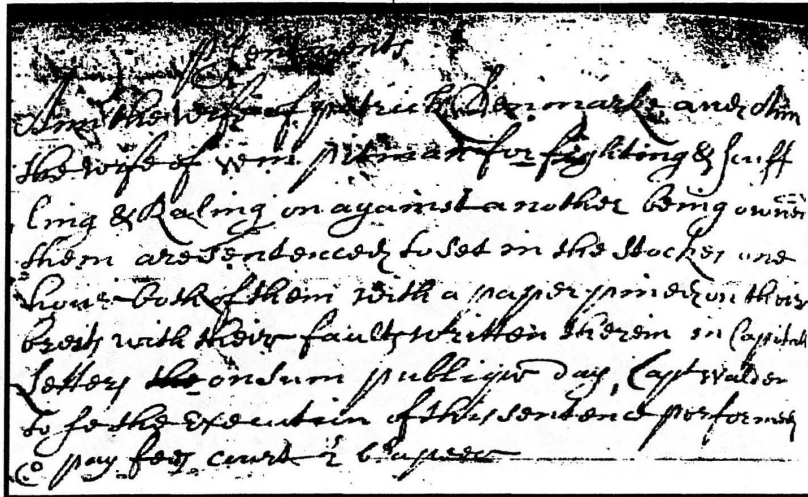 Presentments
Ann the wife of patrick Denmarke and Ann
the wife of wm pitman for fighting & scuff
ling & Raling on against another being owned
them are sentenced to set in the stockes one
houre both of them with a paper pined on their
brests with their faults written therein in Capitall
Letters the on sum publique day, Capt walden
to se the Execution of this sentence performed
& pay fees court